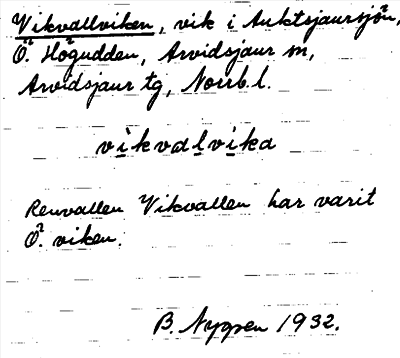 Vikvallviken, vik i Auktsjaursjön,
Ö. Högudden, Arvidsjaur sn,
Arvidsjaur tg, Norrb. l.
vikvalvika
Renvallen Vikvallen har varit
Ö. viken.
B. Nygren 1932.